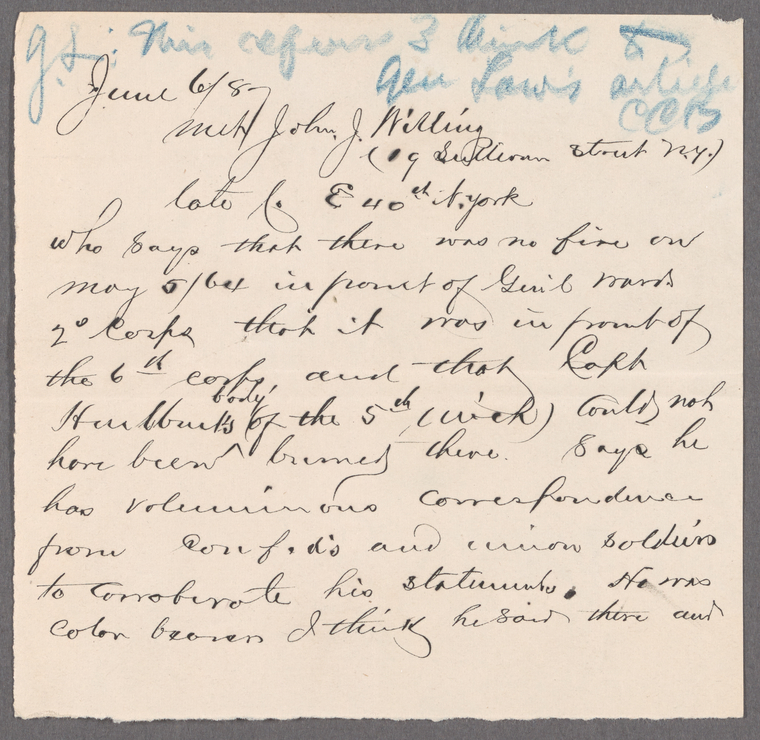 This refers I think to
Gen Law's article
CCB
June 6/87
met John. J. Willing
(19 Sullivan Street N.Y.)
late Co. E 40th N. York
who says that there was no fire on
may 5/64 in front of Genl wards
2d Corps that it was in front of
the 6th corps, and that Capt
Hurlburt's body, (of the 5th (Mich) could not
have been burned there. Says he
has voluminous correspondence
from Confed's and union soldiers
to corroborate his statements. He was
color bearer I think he said there and